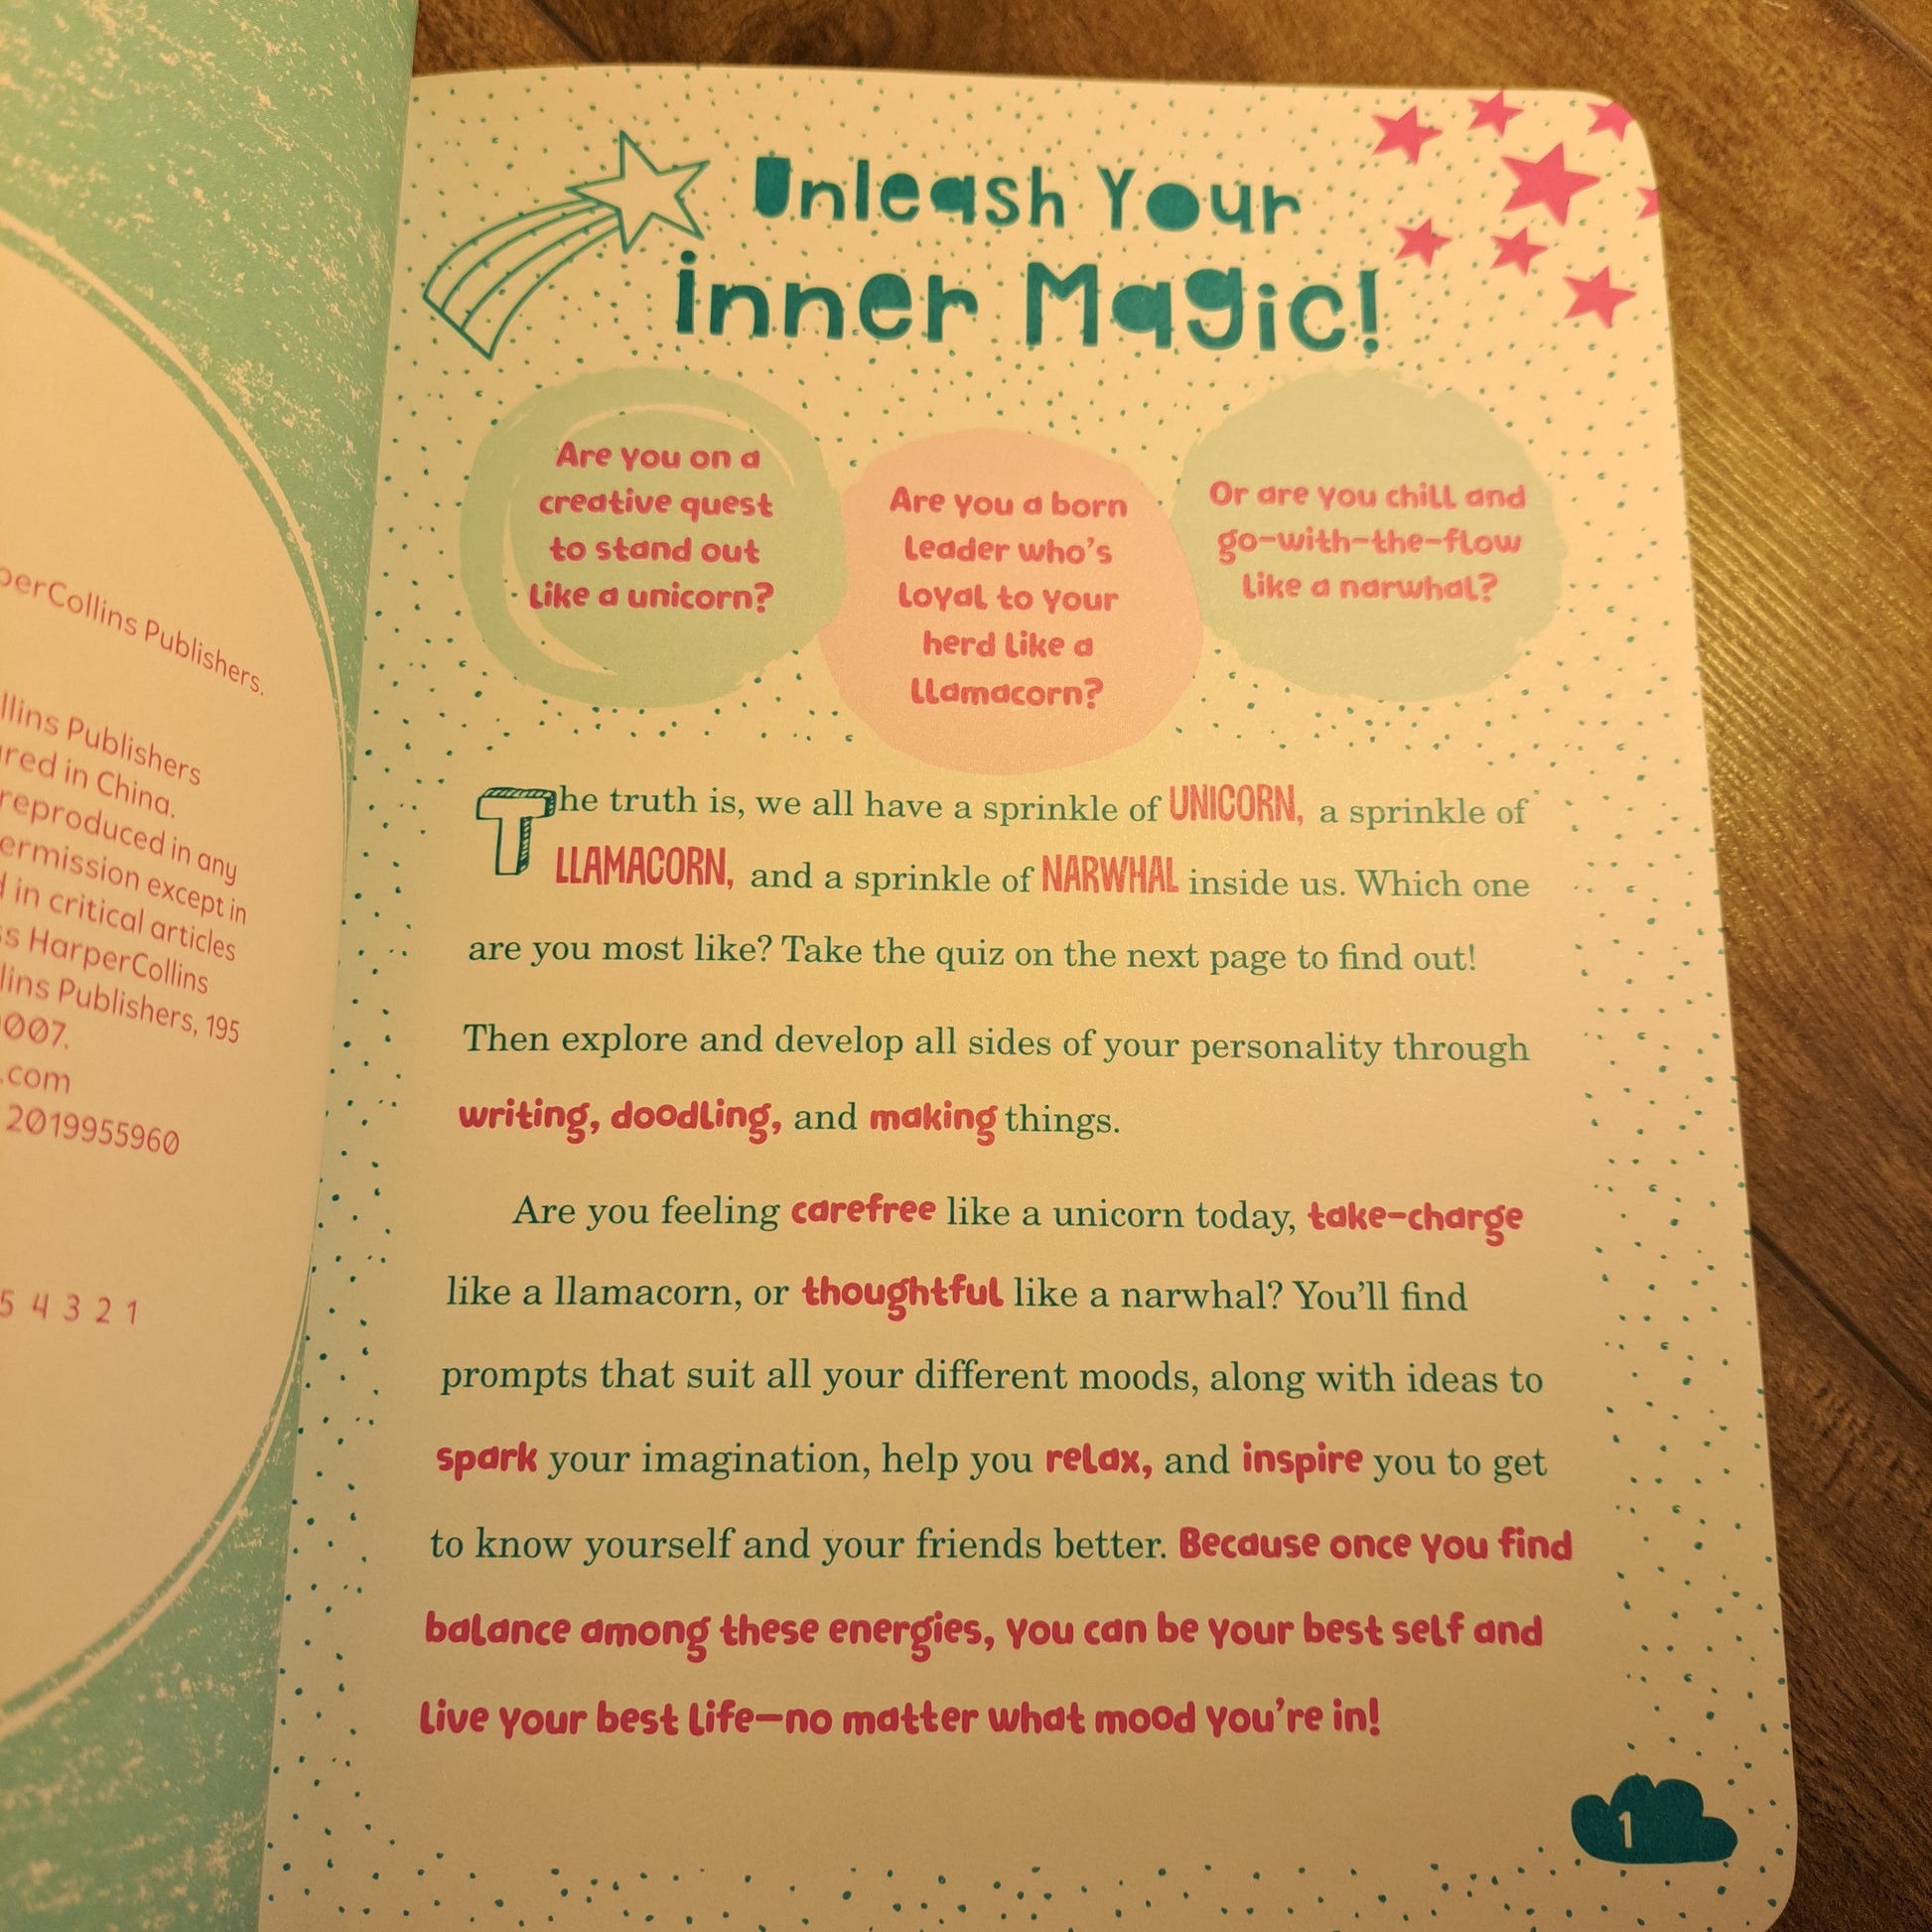 perCollins Publishers.
Collins Publishers
in China.
reproduced in any
permission except in
in critical articles
HarperCollins
Publishers, 195
.com
2019955960
5 4 3 2 1
Unleash Your
inner Magic!
Are you on a
creative quest
to stand out
like a unicorn?
Are you a born
leader who's
loyal to your
herd like a
llamacorn?
Or are you chill and
go-with-the-flow
like a narwhal?
The truth is, we all have a sprinkle of UNICORN, a sprinkle of
LLAMACORN, and a sprinkle of NARWHAL inside us. Which one
are you most like? Take the quiz on the next page to find out!
Then explore and develop all sides of your personality through
writing, doodling, and making things.
Are you feeling carefree like a unicorn today, take-charge
like a llamacorn, or thoughtful like a narwhal? You'll find
prompts that suit all your different moods, along with ideas to
spark your imagination, help you relax, and inspire you to get
to know yourself and your friends better. Because once you find
balance among these energies, you can be your best self and
live your best life—no matter what mood you're in!
1